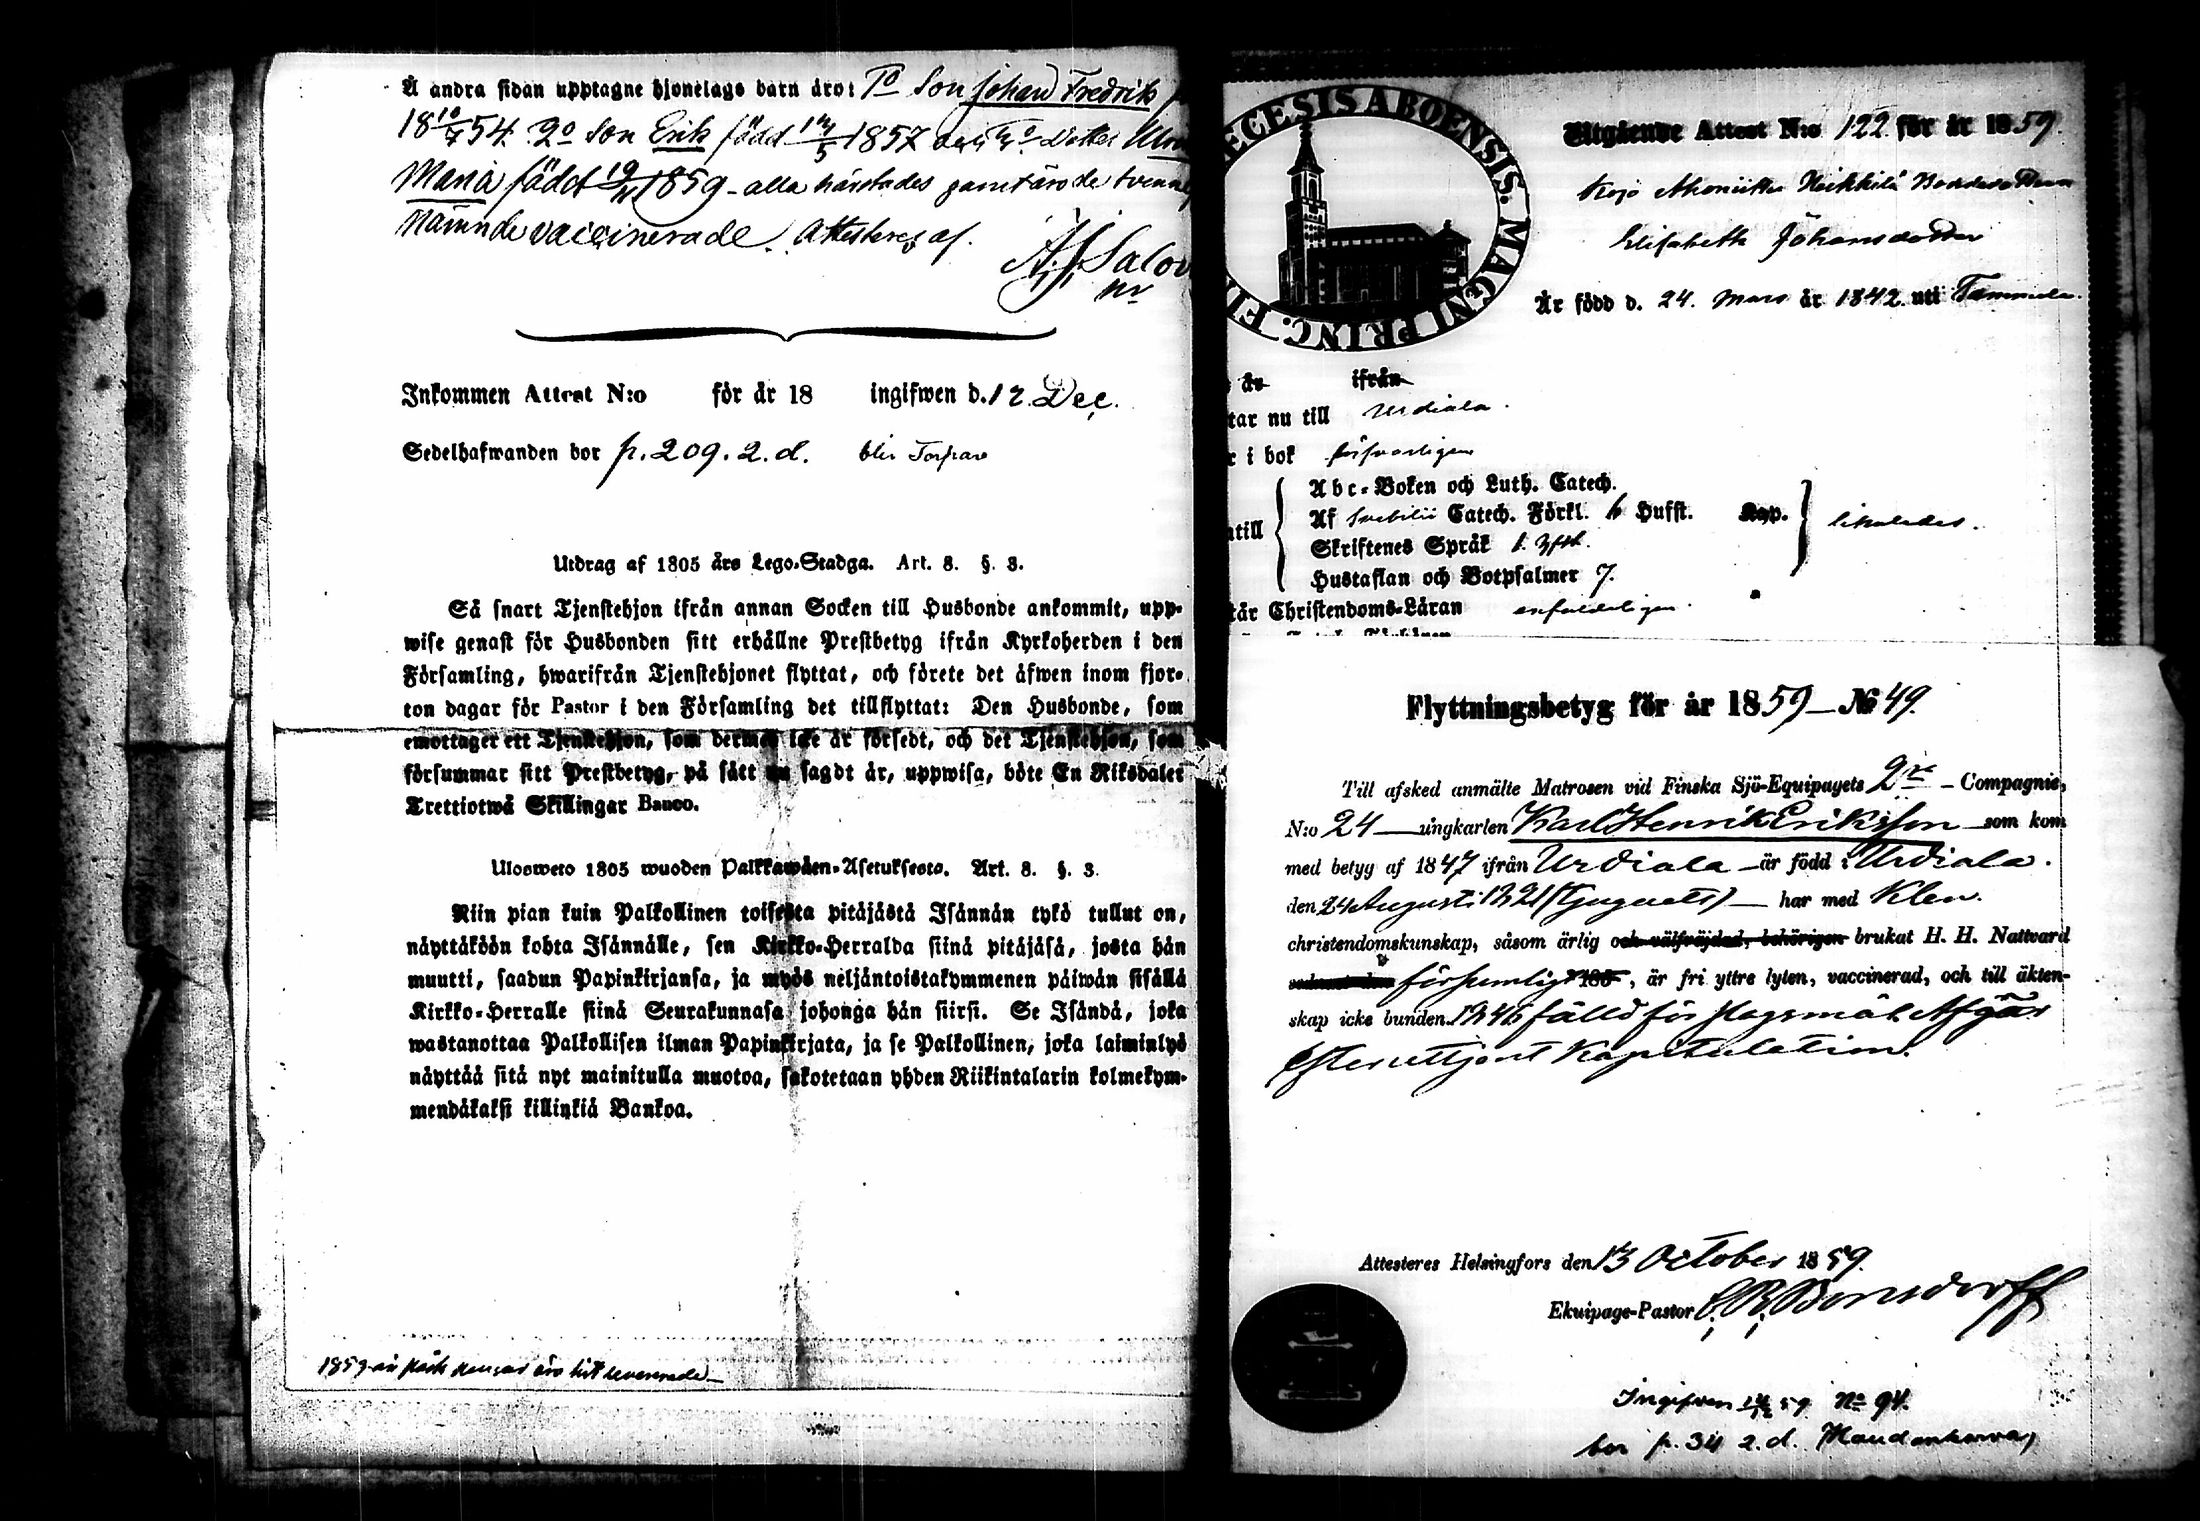 Å andra sidan upptagne hjonelags barn äro: 1o Son Johan Fredrik
18 10/7 54. 2o Son Erik född 1857 Dotter
Maria född 1859 - alla härstädes
Nämnde vaccinerade. Attesteres af.
Inkommen Attest N:o för år 18 ingifwen d. 12 Dec.
Sedelhafwanden bor p. 209. 2. d. blir Torpare
Utdrag af 1805 års Lego-Stadga. Art. 8. §. 3.
Så snart Tjenstehjon ifrån annan Socken till Husbonde ankommit, upp-
wise genast för Husbonden sitt erhållne Prestbetyg ifrån Kyrkoherden i den
Församling, hwarifrån Tjenstehjonet flyttat, och förete det äfwen inom fjor-
ton dagar för Pastor i den Församling det tillflyttat: Den Husbonde, som
emottager ett Tjenstehjon, som dermed icke är försedt, och det Tjenstehjon, som
försummar sitt Prestbetyg, på sätt nu sagdt är, uppwisa, böte En Riksdaler
Trettiotwå Skillingar Banco.
Ulosweto 1805 wuoden Palkkawäen-Asetuksesta. Art. 8. §. 3.
Niin pian kuin Palkollinen toisesta pitäjästä Isännän tykö tullut on,
näyttäköön kohta Isännälle, sen Kirkko-Herralda siinä pitäjäsä, josta hän
muutti, saadun Papinkirjansa, ja myös neljäntoistakymmenen päiwän sisällä
Kirkko-Herralle siinä Seurakunnasa johonga hän siirsi. Se Isändä, joka
wastanottaa Palkollisen ilman Papinkirjata, ja se Palkollinen, joka laiminlyö
näyttää sitä nyt mainitulla muotoa, sakotetaan yhden Riikintalarin kolmekym-
mendäkaksi killinkiä Bankoa.
1859 äro hit levererade
ECESIS ABOENSIS. MAGNI PRINC. FI
Utgående Attest N:o 122 för år 1859.
Heikkilä
Elisabeth Johansdotter
Är född d. 24. Mars år 1842 uti Tammela.
år ifrån
tar nu till Urdiala.
r i bok försvarligen
Abc-Boken och Luth. Catech.
ntill Af Svebilii Catech. Förkl. Hufst. Kap. likaledes.
Skriftenes Språk
Hustaflan och Botpsalmer 7.
tår Christendoms-Läran enfaldeligen.
Flyttningsbetyg för år 1859 — No 49.
Till afsked anmälte Matrosen vid Finska Sjö-Equipagets 2re Compagnie,
N:o 24 ungkarlen Karl Henrik Eriksson som kom
med betyg af 1847 ifrån Urdiala är född i Urdiala.
den 24 Augusti 1821 har med Klen
christendomskunskap, såsom ärlig och välfräjdad, behörigen brukat H. H. Nattvard
försumligt 185 , är fri yttre lyten, vaccinerad, och till äkten-
skap icke bunden. 1846 fälld för slagsmål. Afgår
efter uttjent Kapitulation.
Attesteres Helsingfors den 13 October 1859.
Ekuipage-Pastor C. R. Bonsdorff
Ingifven 59 No 94.
bor p. 34 2. d.